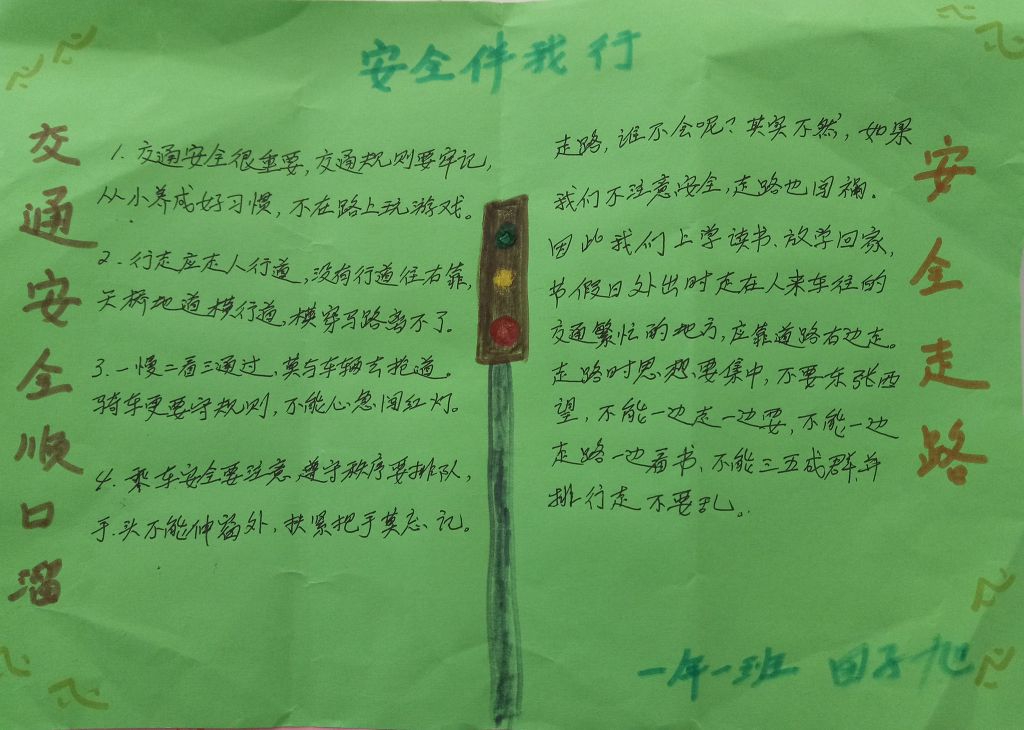 安全伴我行
交通安全顺口溜
1. 交通安全很重要,交通规则要牢记,
从小养成好习惯,不在路上玩游戏。
2. 行走应走人行道,没有行道往右靠,
天桥地道横行道,横穿马路离不了。
3. 一慢二看三通过,莫与车辆去抢道。
骑车更要守规则,不能心急闯红灯。
4. 乘车安全要注意,遵守秩序要排队,
手、头不能伸窗外,扶紧把手莫忘记。
安全走路
走路,谁不会呢?其实不然,如果
我们不注意安全,走路也闯祸。
因此我们上学读书、放学回家,
节假日外出时走在人来车往的
交通繁忙的地方,应靠道路右边走。
走路时思想要集中,不要东张西
望,不能一边走一边耍,不能一边
走路一边看书、不能三五成群并
排行走不要乱。
一年一班 田子旭